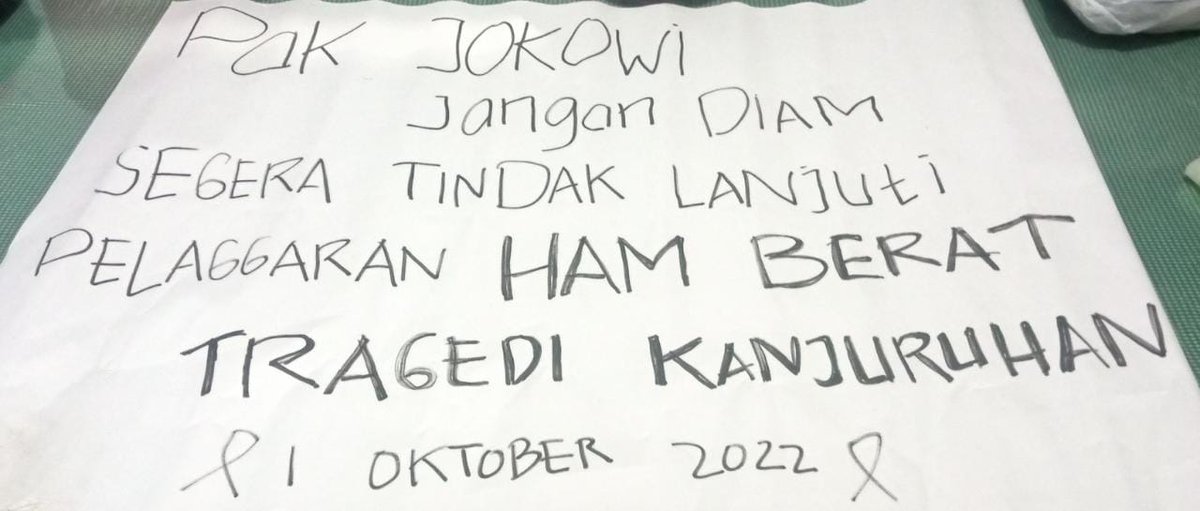 Pak JOKOWI
Jangan DIAM
SEGERA TINDAK LANJUti
PELAGGARAN HAM BERAT
TRAGEDI KANJURUHAN
1 OKTOBER 2022